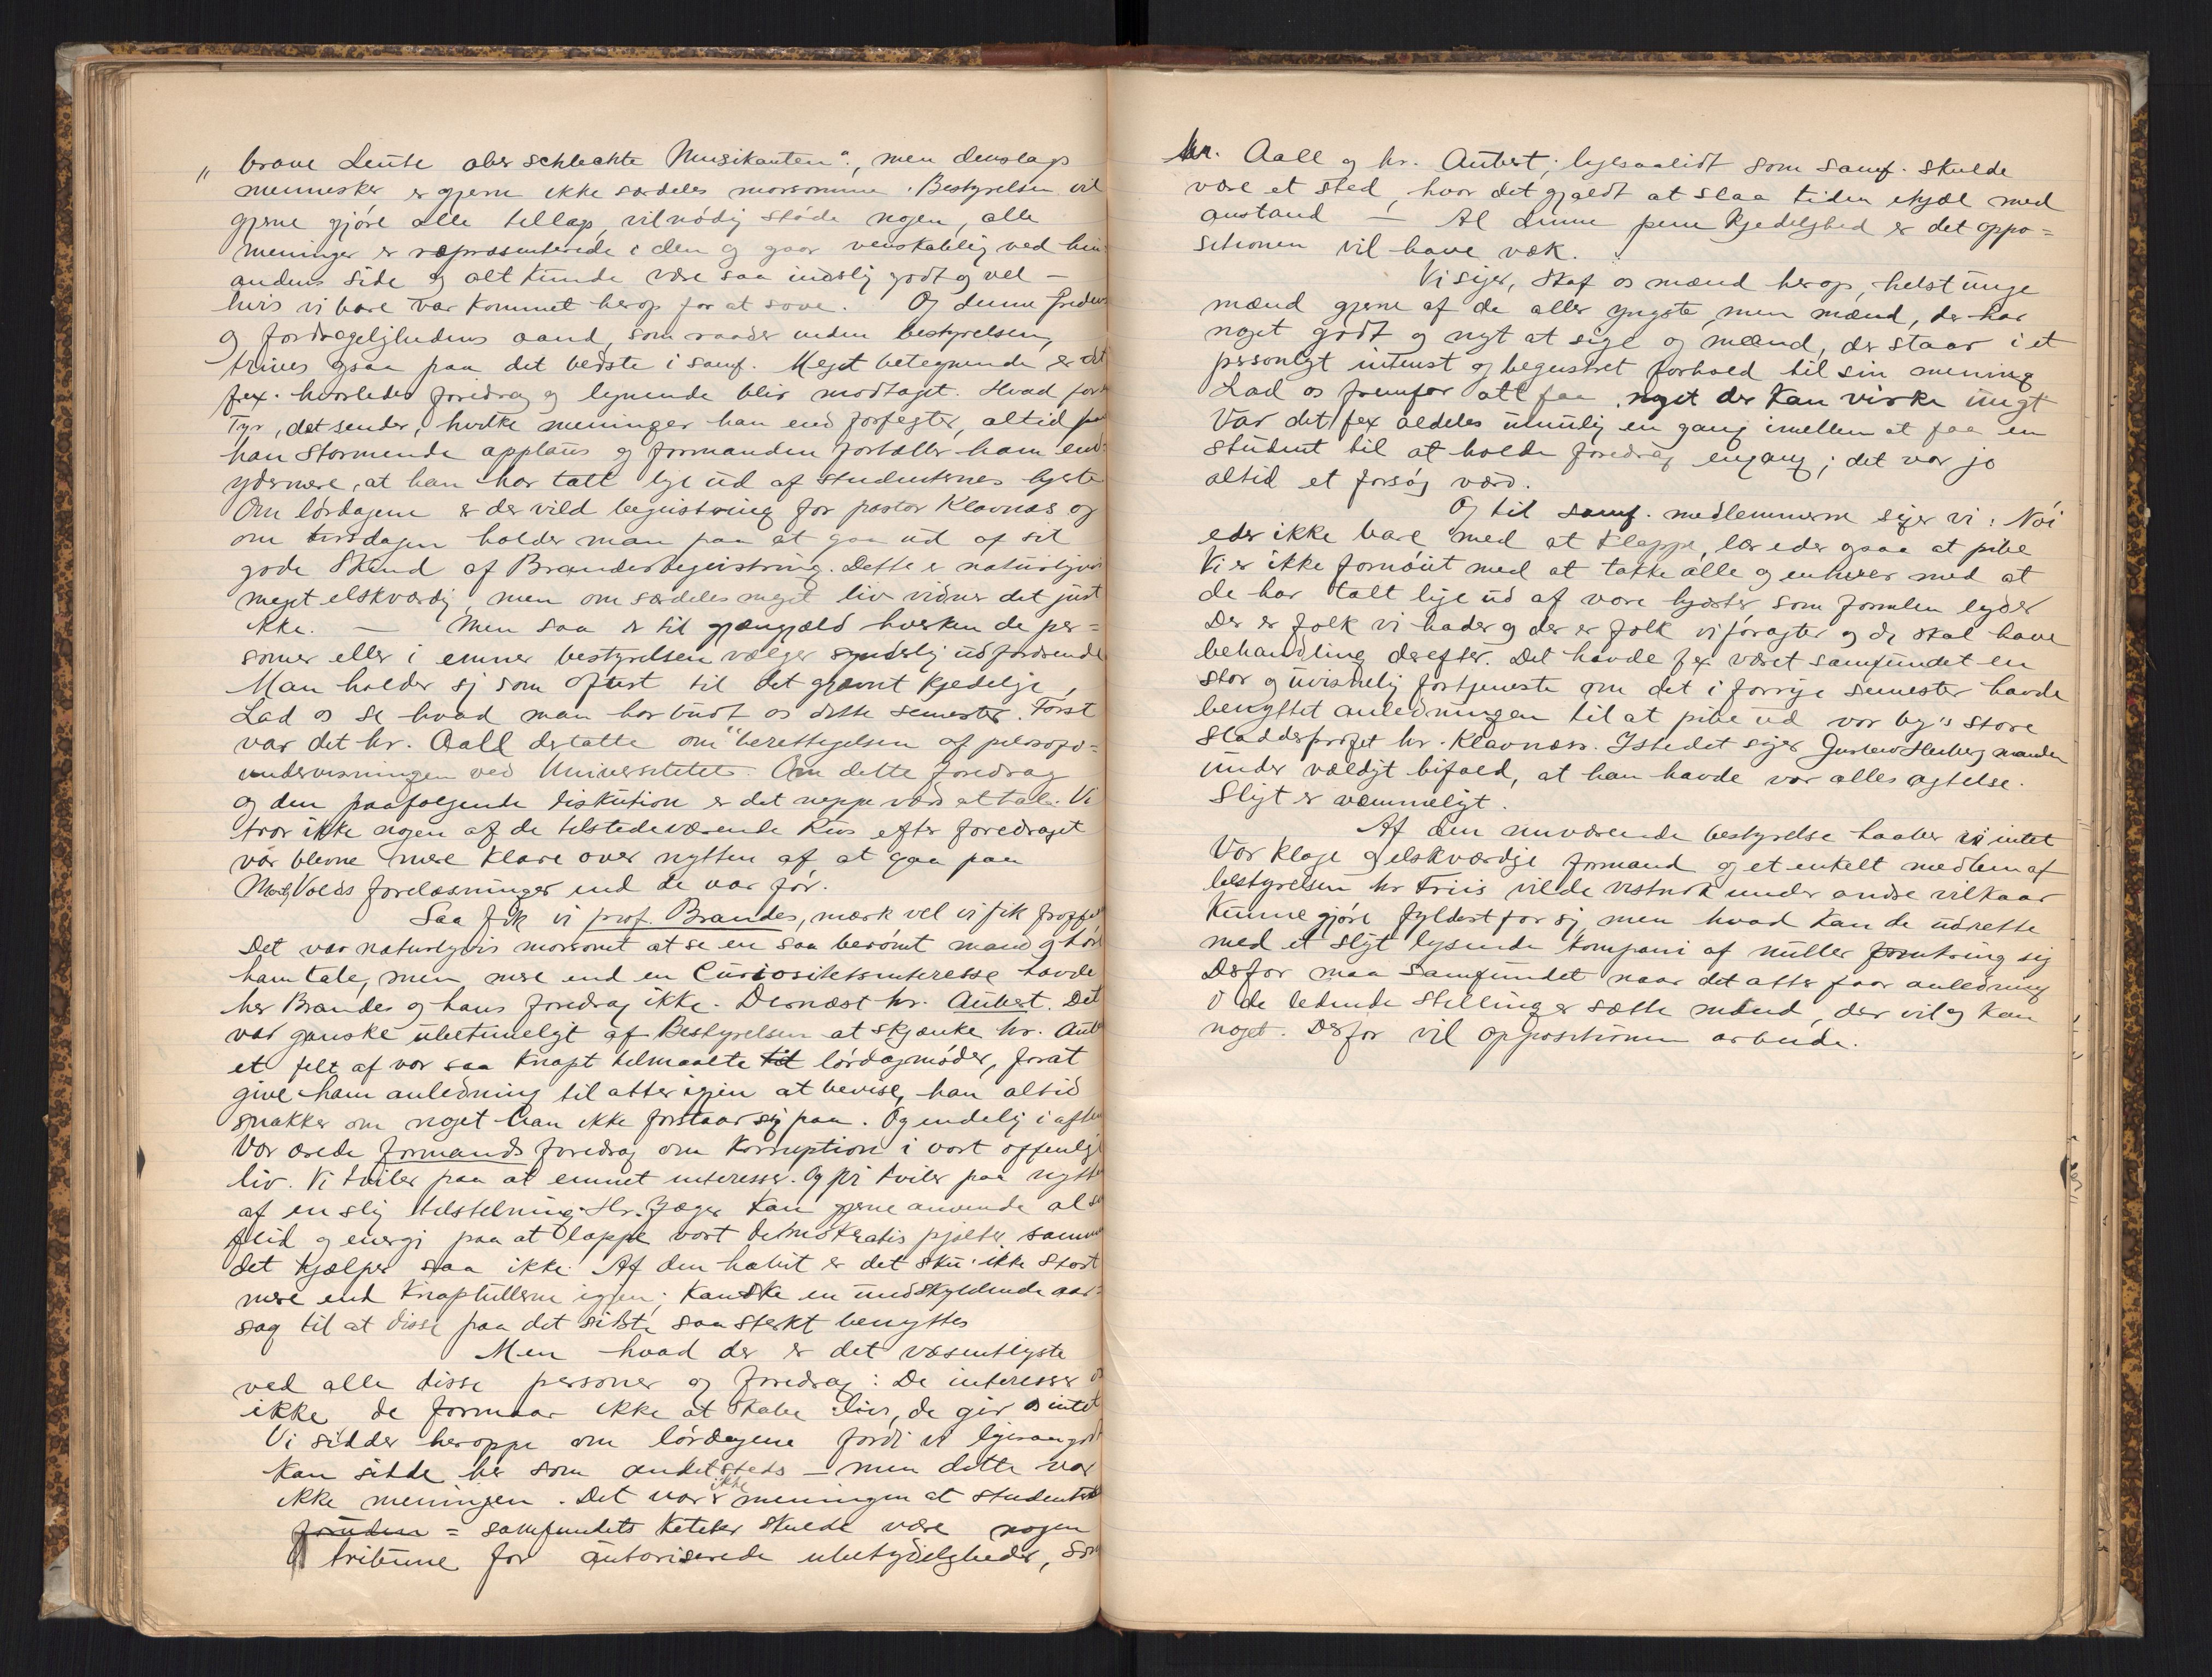 „ brave Leute aber schlechte Musikanten“, men denslags
mennesker er gjerne ikke særdeles morsomme. Bestyrelsen vil
gjerne gjøre alle tillags, vil nødig støde nogen, alle
meninger er repræsenterede i den og gaar venskabelig ved hin-
andens side og alt kunde være saa inderlig godt og vel —
hvis vi bare var kommet herop for at sove. Og denne fredens
og fordragelighedens aand, som raader inden bestyrelsen,
trives ogsaa paa det bedste i samf. Meget betegnende er det
fex. hvorledes foredrag og lignende blir modtaget. Hvad for
Tyr, det sender, hvilke meninger han end forfegter, altid faar
han stormende applaus og formanden fortæller ham end-
ydermere, at han har talt lige ud af studenternes hjerte
Om lørdagene er der vild begeistring for pastor Klavnæs og
om tirsdagen holder man paa at gaa ud af sit
gode Skind af Brandesbegeistring. Dette er naturligvis
meget elskværdig, men om særdeles meget liv vidner det just
ikke. — Men saa er til gjængjæld hverken de per=
soner eller i emner bestyrelsen vælger synderlig udfordrende
Man holder sig som oftest til det jævnt kjedelige,
Lad os se hvad man har budt os dette semester. Først
var det hr. Aall der talte om "berettigelsen af filosofi=
undervisningen ved Universitetet. Om dette foredrag
og den paafølgende diskution er det neppe værd at tale. Vi
tror ikke nogen af de tilstedeværende Rus efter foredraget
var blevne mere klare over nytten af at gaa paa
Mourly Volds forelæsninger end de var før.
Saa fik vi prof. Brandes, mærk vel vi fik
Det var naturligvis morsomt at se en saa berømt mand og høre
ham tale, men mere end en Curiositetsinteresse havde
her Brandes og hans foredrag ikke. Dernæst hr. Aubert. Det
var ganske ubetimeligt af Bestyrelsen at skjænke hr. Aubert
et felt af vor saa knapt tilmaalte til lørdagsmøder, forat
give ham anledning til atter igjen at bevise, han altid
snakker om noget han ikke forstaar sig paa. Og endelig i aften
Vor ærede formands foredrag om Korruption i vort offenlige
liv. Vi tviler paa at emnet interesser. Og vi tviler paa nytten
af en slig tilstelning. Hr. Jæger kan gjerne anvende al sin
flid og energi paa at lappe vort demokratis pjalter sammen
det hjælper saa ikke. Af den habit er det sku' ikke stort
mere end knaphullerne igjen; kanske en undskyldende aar=
sag til at disse paa det sidste saa sterkt benyttes
Men hvad der er det væsentligste
ved alle disse personer og foredrag: De interesser os
ikke de formaar ikke at skabe liv, de gir os intet
Vi sidder heroppe om lørdagene fordi vi ligesaagodt
kan sidde her som andetsteds — men dette var
ikke meningen. Det var ikke meningen at student
= samfundets kateter skulde være nogen
tribune for autoriserede ubetydeligheder, som
hr. Aall og hr. Aubert; ligesaalidt som samf. skulde
være et sted, hvor det gjaldt at slaa tiden ihjæl med
anstand — Al denne pene kjedelighed er det oppo=
sitionen vil have væk.
Vi siger, skaf os mænd herop, helst unge
mænd gjerne af de aller yngste, men mænd, der har
noget godt og nyt at sige og mænd, der staar i et
personligt intenst og begeistret forhold til sin mening
Lad os fremfor alt faa noget der kan virke ungt
Var det fex aldeles umulig en gang imellem at faa en
student til at holde foredrag engang; det var jo
altid et forsøg værd.
Og til samf. medlemmerne siger vi: Nøi
eder ikke bare med at klappe, lær eder ogsaa at pibe
Vi er ikke fornøiet med at takke alle og enhver med at
de har talt lige ud af vore hjerter, som formlen lyder
Der er folk vi hader og der er folk vi foragter og de skal have
behandling derefter. Det havde fex været samfundet en
stor og uvisnelig fortjeneste om det i forrige semester havde
benyttet anledningen til at pibe ud vor by's store
sladderprofet hr. Klavnæss. Istedet siger Gustav Heiberg manden
under vældigt bifald, at han havde vor alles agtelse.
Sligt er væmmeligt.
Af den nuværende bestyrelse haaber vi intet
Vor kloge og elskværdige formand og et enkelt medlem af
bestyrelsen hr Friis vilde vistnok under andre vilkaar
kunne gjøre fyldest for sig, men hvad kan de udrette
med et sligt lysende kompani af nuller omkring sig
Derfor maa Samfundet naar det atter faar anledning
i de ledende stillinger sætte mænd, der vil og kan
noget. Derfor vil oppositionen arbeide.